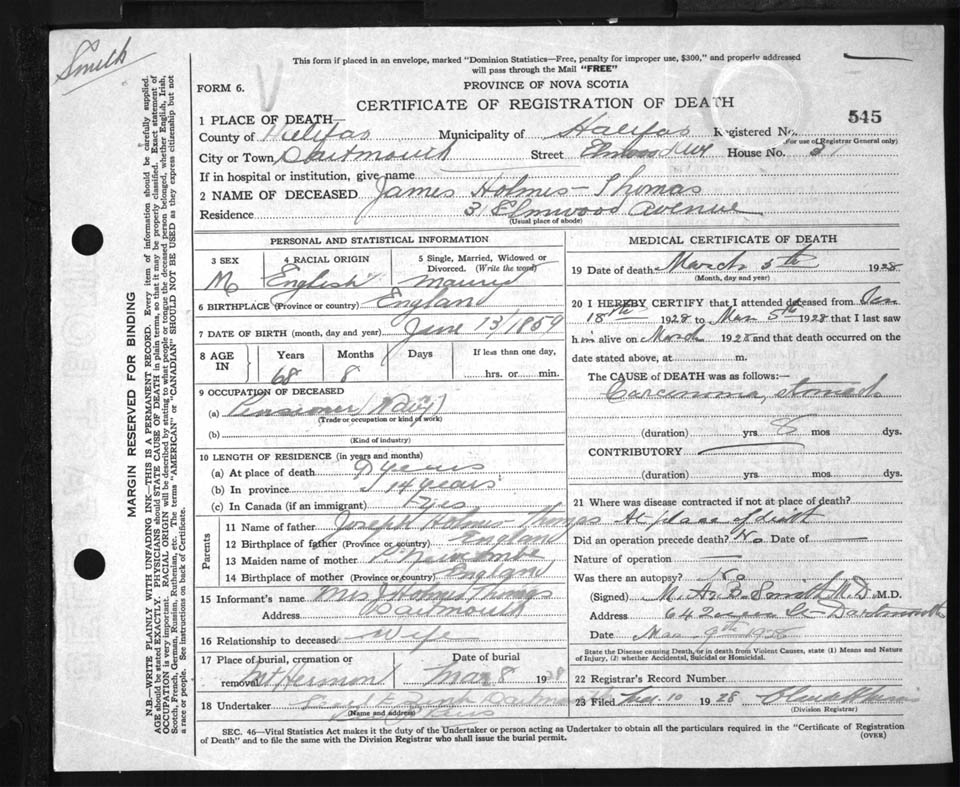 Smith
This form if placed in an envelope, marked "Dominion Statistics—Free, penalty for improper use, $300," and properly addressed
will pass through the Mail "FREE"
FORM 6.
PROVINCE OF NOVA SCOTIA
CERTIFICATE OF REGISTRATION OF DEATH
545
1 PLACE OF DEATH
County of Halifax Municipality of Halifax Registered No.
(For use of Registrar General only)
City or Town Dartmouth Street Elmwood Ave House No. 31
If in hospital or institution, give name
2 NAME OF DECEASED James Holmes-Thomas
Residence 31 Elmwood Avenue
(Usual place of abode)
PERSONAL AND STATISTICAL INFORMATION
3 SEX 4 RACIAL ORIGIN 5 Single, Married, Widowed or
Divorced. (Write the word)
M English Married
6 BIRTHPLACE (Province or country) England
7 DATE OF BIRTH (month, day and year) June 13/1859
8 AGE IN Years Months Days If less than one day,
68 8 hrs. or min.
9 OCCUPATION OF DECEASED
(a) Pensioner (Navy)
(Trade or occupation or kind of work)
(b)
(Kind of industry)
10 LENGTH OF RESIDENCE (in years and months)
(a) At place of death 9 years
(b) In province 14 years
(c) In Canada (if an immigrant)
Parents
11 Name of father Joseph Holmes-Thomas
12 Birthplace of father (Province or country) England
13 Maiden name of mother Newcombe
14 Birthplace of mother (Province or country) England
15 Informant's name Mrs J Holmes Thomas
Address Dartmouth
16 Relationship to deceased Wife
17 Place of burial, cremation or Date of burial
removal Mt Hermon Mar 8 1928
18 Undertaker Dartmouth
(Name and address)
MEDICAL CERTIFICATE OF DEATH
19 Date of death March 5th 1928
(Month, day and year)
20 I HEREBY CERTIFY that I attended deceased from
18th 1928 to Mar 5th 1928 that I last saw
him alive on March 1928 and that death occurred on the
date stated above, at m.
The CAUSE OF DEATH was as follows:—
Carcinoma, stomach
(duration) yrs 8 mos dys.
CONTRIBUTORY
(duration) yrs. mos dys.
21 Where was disease contracted if not at place of death?
At place of death
Did an operation precede death? No Date of
Nature of operation
Was there an autopsy? No
(Signed) M. A. B. Smith M.D. M.D.
Address 64 Queen St Dartmouth
Date Mar 9th 1928
State the Disease causing Death, or in death from Violent Causes, state (1) Means and Nature
of Injury, (2) whether Accidental, Suicidal or Homicidal.
22 Registrar's Record Number
23 Filed 10 1928
(Division Registrar)
SEC. 46—Vital Statistics Act makes it the duty of the Undertaker or person acting as Undertaker to obtain all the particulars required in the "Certificate of Registration
of Death" and to file the same with the Division Registrar who shall issue the burial permit. (OVER)
MARGIN RESERVED FOR BINDING
N.B.—WRITE PLAINLY WITH UNFADING INK—THIS IS A PERMANENT RECORD. Every item of information should be carefully supplied.
AGE should be stated EXACTLY. PHYSICIANS should STATE CAUSE OF DEATH in plain terms, so that it may be properly classified. Exact statement of
OCCUPATION is very important. RACIAL ORIGIN will be described by stating to what people or tongue the deceased person belonged, whether English, Irish,
Scotch, French, German, Russian, Ruthenian, etc. The terms "AMERICAN" or "CANADIAN" SHOULD NOT BE USED as they express citizenship but not
a race or people. See instructions on back of Certificate.